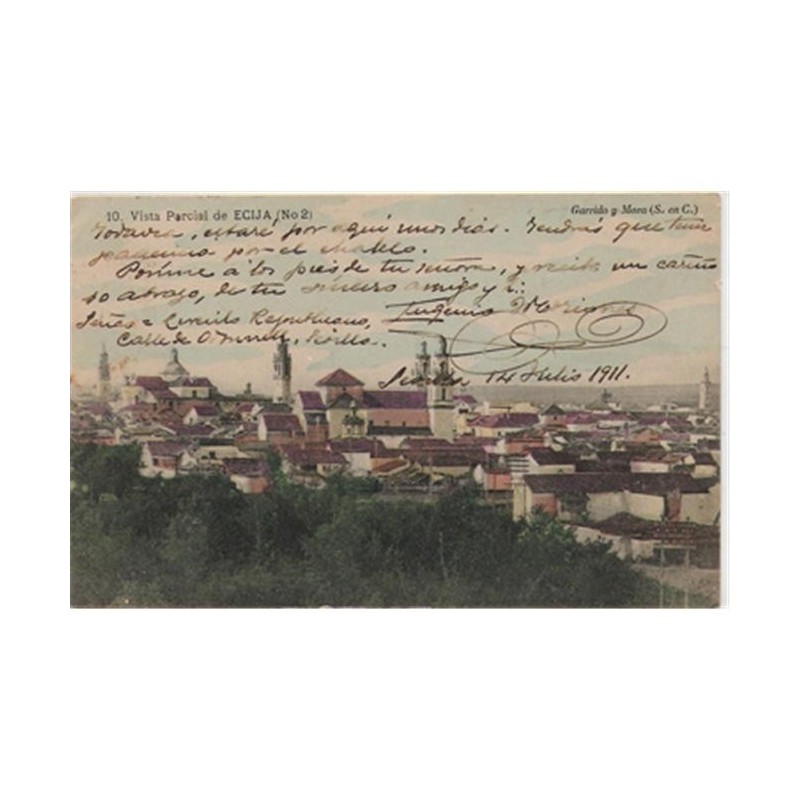 10. Vista Parcial de ECIJA (No 2)
Garrido y Mora (S. en C.)
Todavia, estaré por aquí unos dias. Tendrás que tener
paciencia por el
Ponme á los pies de tu señora, y recibe un cariño
so abrazo, de tu sincero amigo y
Eugenio
Señas = Circulo Republicano,
Calle de O'Donnell, Sevilla.
14 Julio 1911.